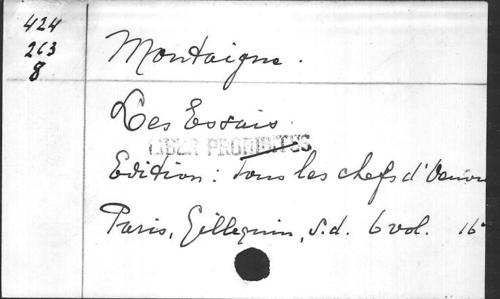 424
263
8
Montaigne.
Les Essais.
LIBER PROHIBITUS
Edition: Tous les chefs d'Oeuvre
Paris, Gillequin, s.d. 6 vol. 16°